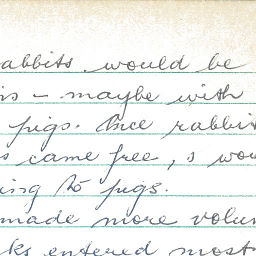 rabbits would be
is - maybe with
pigs. Once rabbit
s came free, s wou
ing to pugs.
made more volun
ks entered most